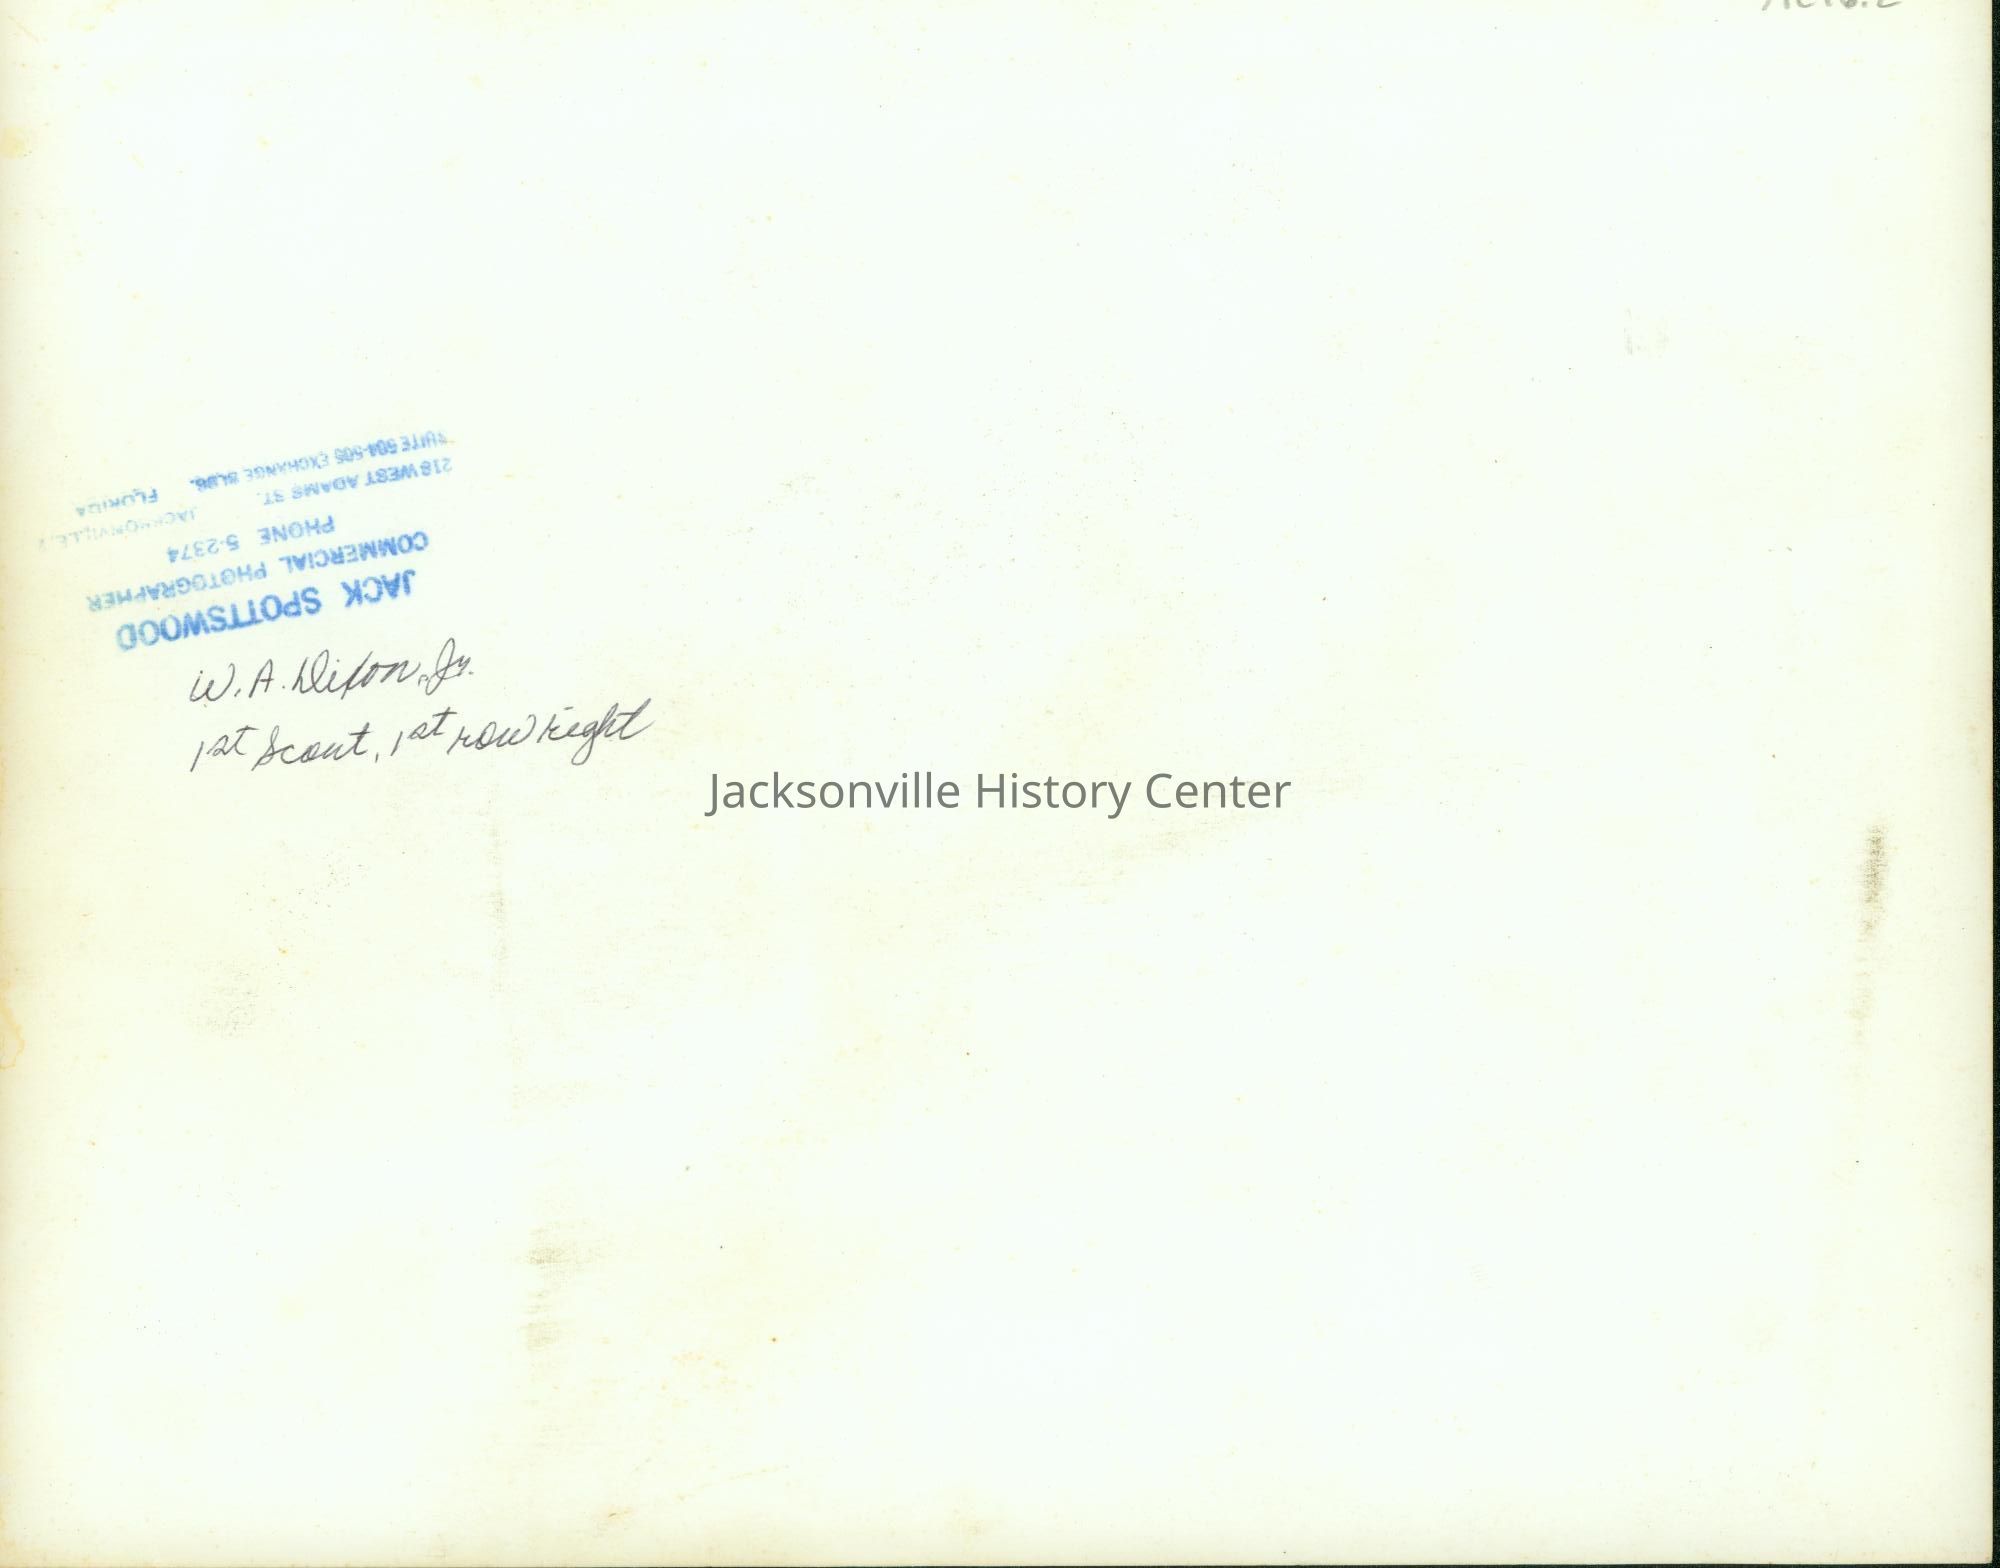 JACK SPOTTSWOOD
COMMERCIAL PHOTOGRAPHER
PHONE 5-2374
218 WEST ADAMS ST. JACKSONVILLE 2
SUITE 504-505 EXCHANGE BLDG. FLORIDA
W. A. Dixon, Jr.
1st Scout, 1st row right
Jacksonville History Center